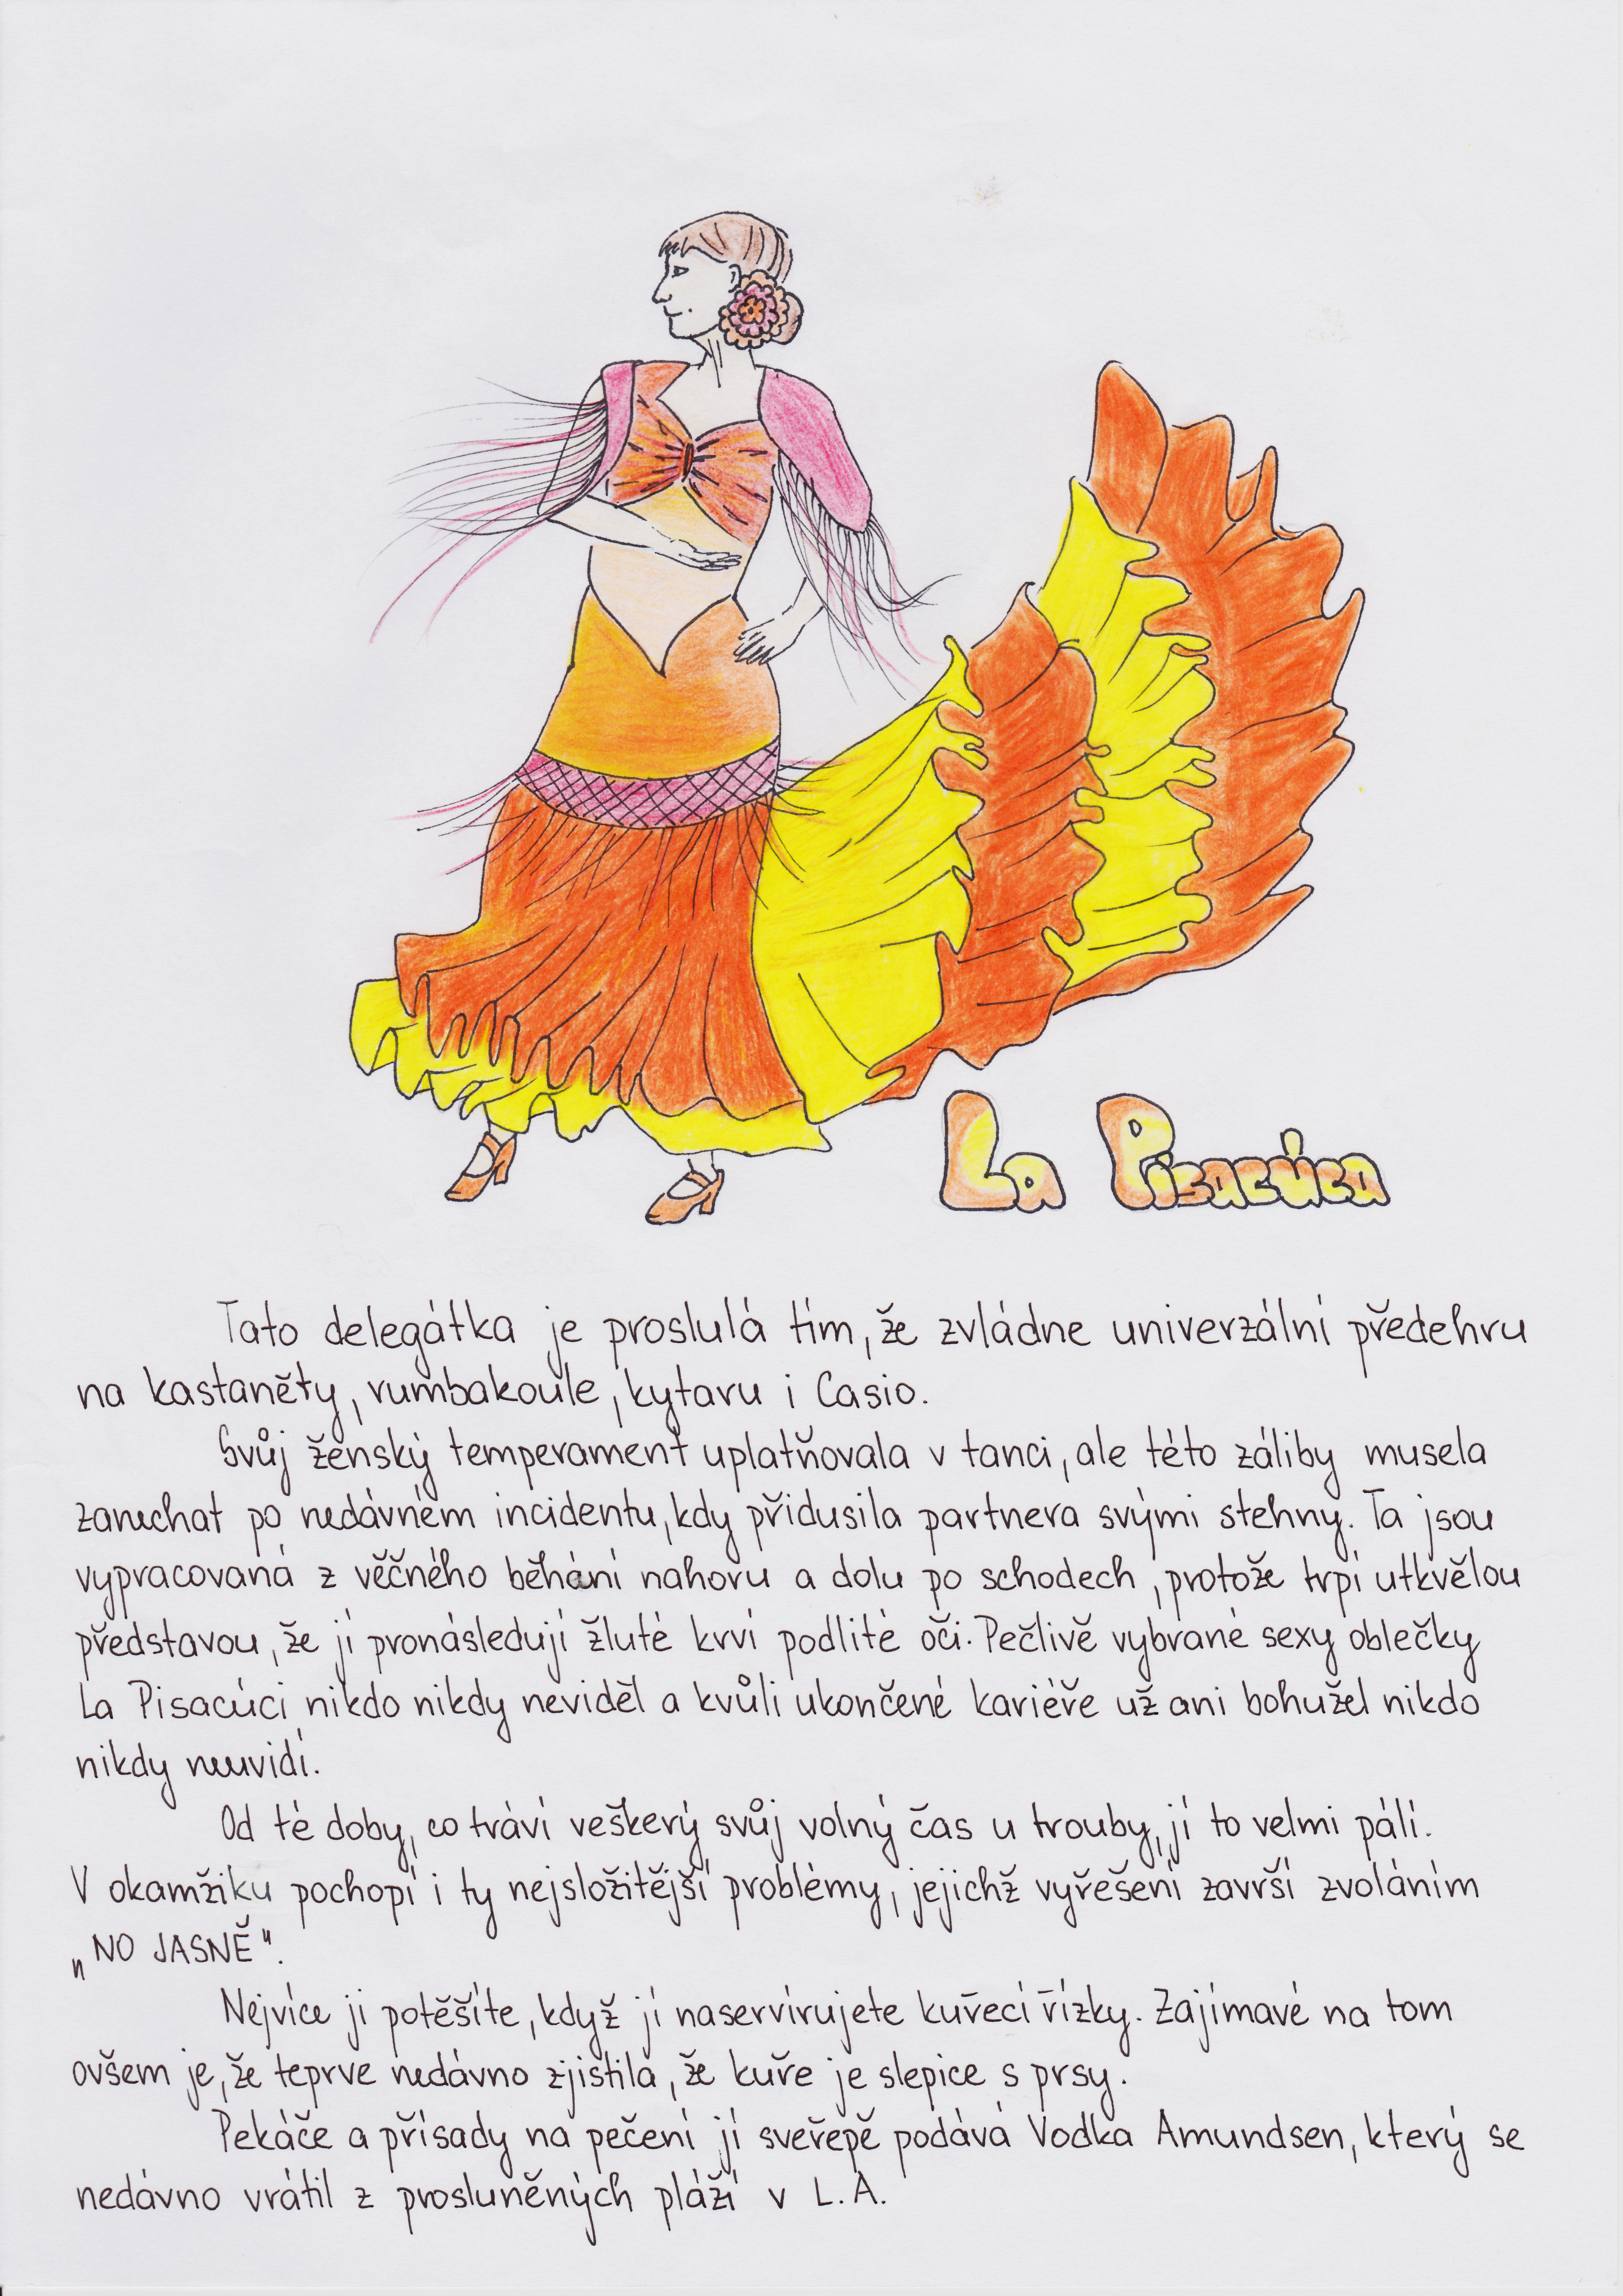 La Pisacúca
Tato delegátka je proslulá tím, že zvládne univerzální předehru
na kastaněty, rumbakoule, kytaru i Casio.
Svůj ženský temperament uplatňovala v tanci, ale této záliby musela
zanechat po nedávném incidentu, kdy přidusila partnera svými stehny. Ta jsou
vypracovaná z věčného běhání nahoru a dolu po schodech, protože trpí utkvělou
představou, že jí pronásledují žluté krví podlité oči. Pečlivě vybrané sexy oblečky
La Pisacúci nikdo nikdy neviděl a kvůli ukončené kariéře už ani bohužel nikdo
nikdy neuvidí.
Od té doby, co tráví veškerý svůj volný čas u trouby, jí to velmi pálí.
V okamžiku pochopí i ty nejsložitější problémy, jejichž vyřešení završí zvoláním
„NO JASNĚ".
Nejvíce ji potěšíte, když jí naservírujete kuřecí řízky. Zajímavé na tom
ovšem je, že teprve nedávno zjistila, že kuře je slepice s prsy.
Pekáče a přísady na pečení jí sveřepě podává Vodka Amundsen, který se
nedávno vrátil z prosluněných pláží v L.A.